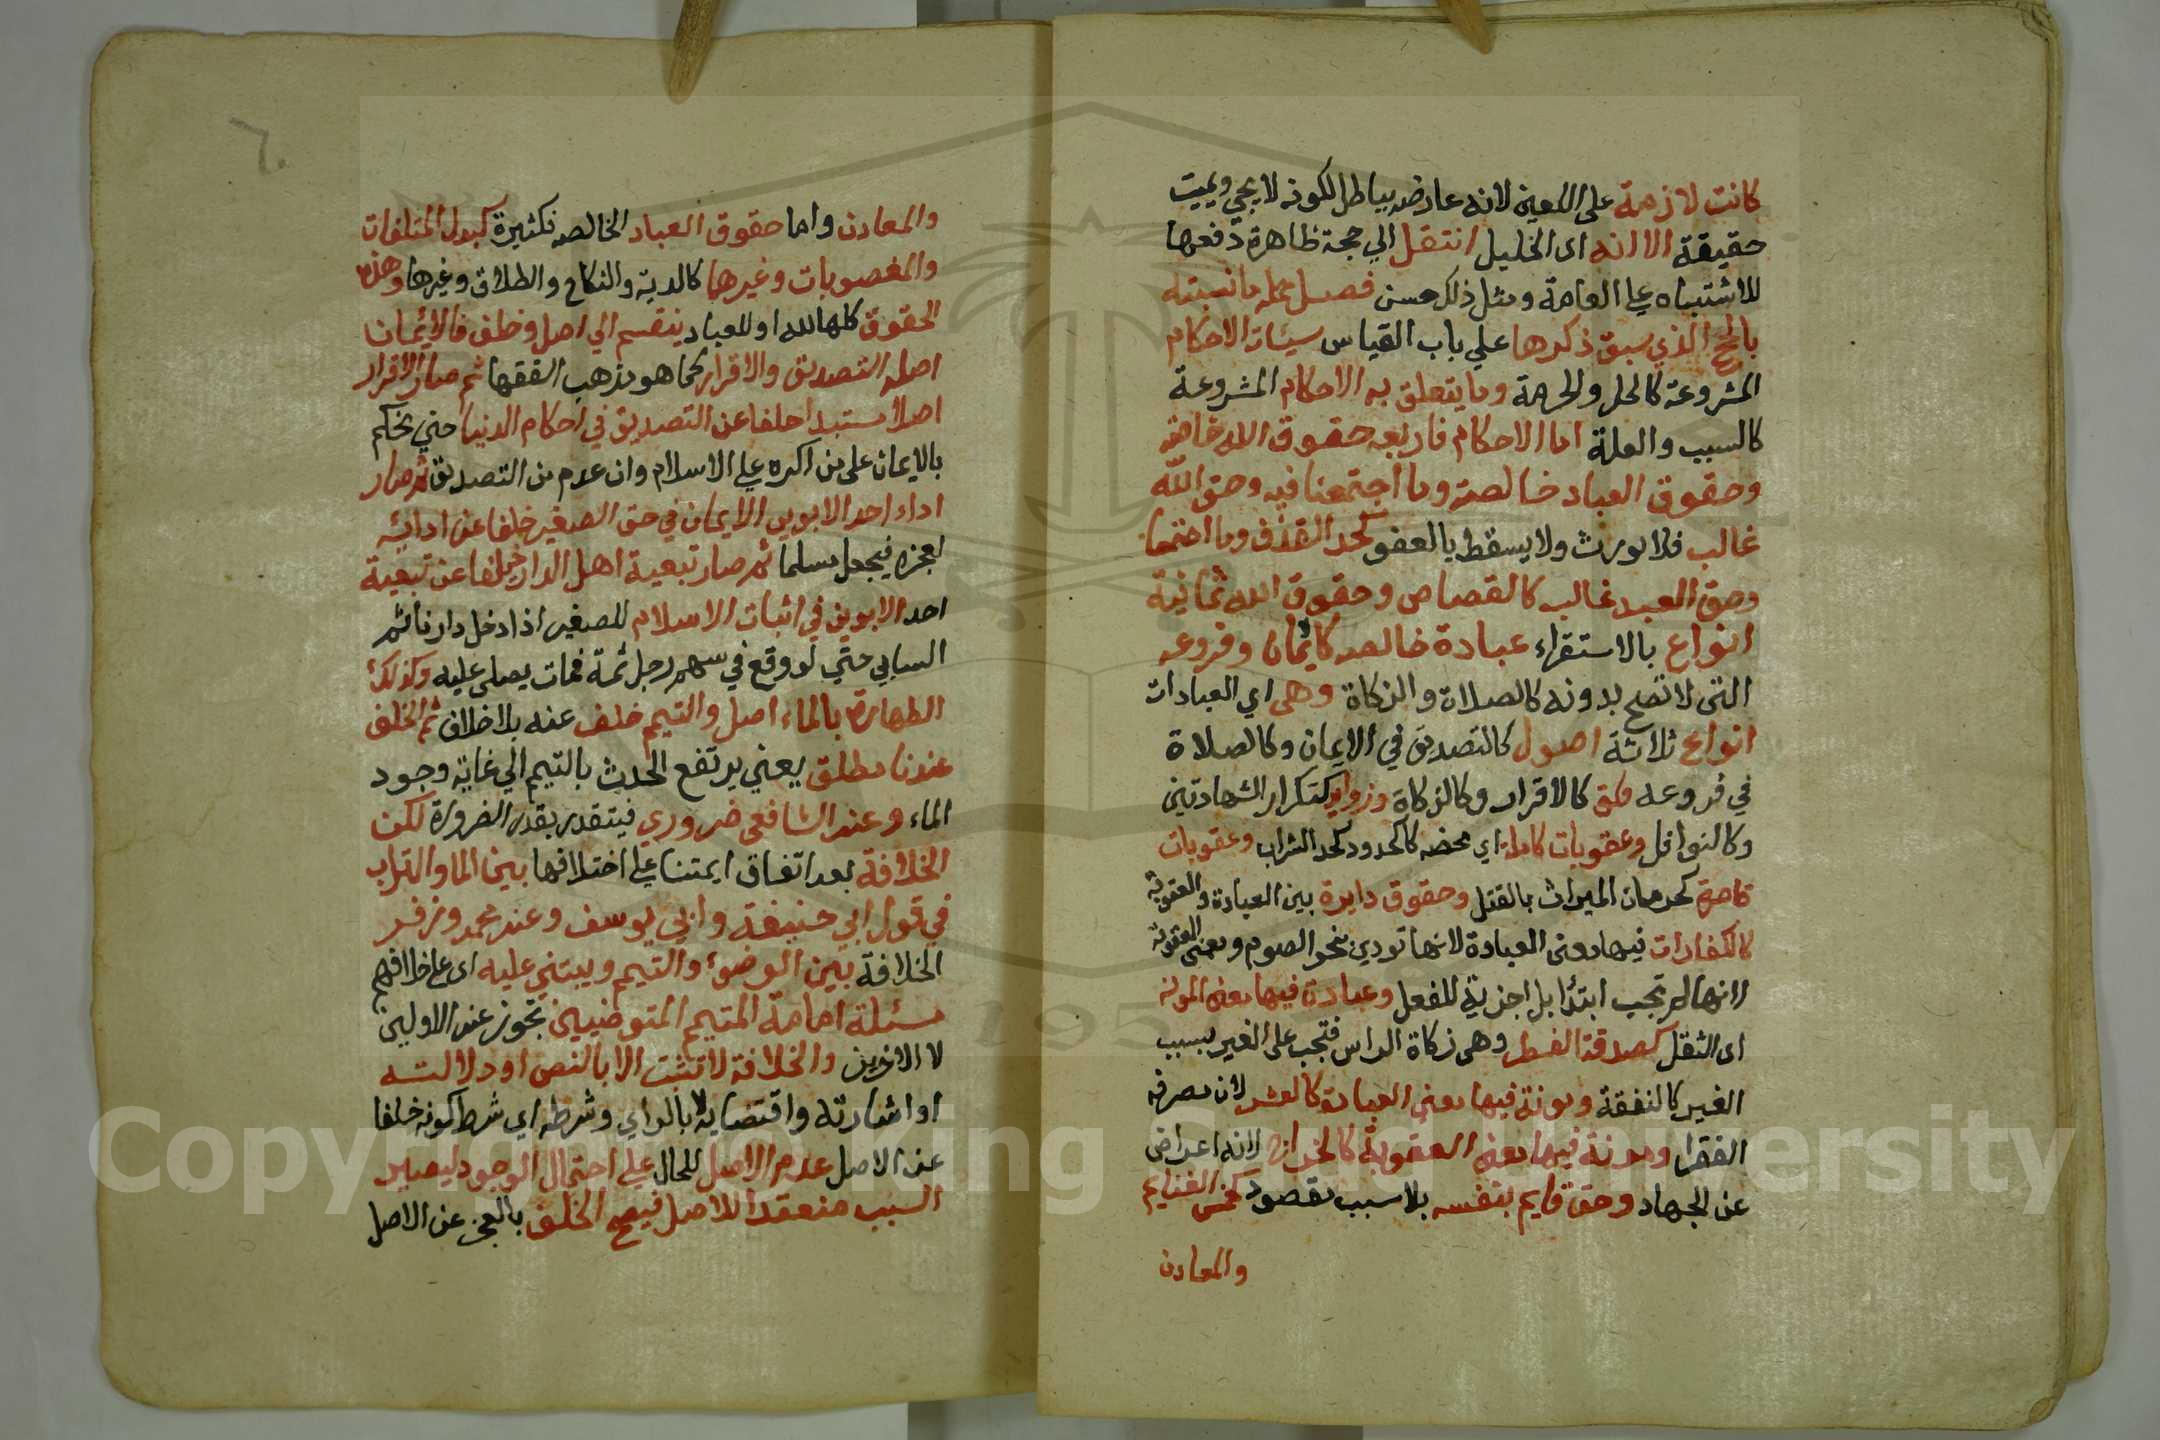 كانت لازمة على اللعين لانه عارضه بباطل لكونه لا يحيي ويميت
حقيقة الا انه اى الخليل انتقل الي حجة ظاهرة دفعها
للاشتباه علي العامة ومثل ذلك حسن فصل جملة ما ثبت
بالحجج الذي سبق ذكرها علي باب القياس سيئات الاحكام
المشروعة كالحل والحرمة وما يتعلق به الاحكام المشروعة
كالسبب والعلة اما الاحكام فاربعه حقوق الله خاصة
وحقوق العباد خالصة وما اجتمعا فيه وحق الله
غالب فلا يورث ولا يسقط بالعفو كحد القذف وما اجتمعا
وحق العبد غالب كالقصاص وحقوق الله ثمانية
انواع بالاستقراء عبادة خالصه كايمان وفروعه
التى لا تصح بدونه كالصلاة والزكاة وهى اي العبادات
انواع ثلاثة اصول كالتصديق في الايمان وكالصلاة
في فروعه ملحق كالاقرار وكالزكاة وزوايد كتكرار الشهادتين
وكالنوافل وعقوبات كاملة اي محضه كالحدود كحد الشراب وعقوبات
قاصرة كحرمان الميراث بالقتل وحقوق دايرة بين العبادة والعقوبة
كالكفارات فيها معنى العبادة لانها تودى بنحو الصوم ومعنى العقوبة
لانها لم تجب ابتدأ بل اجزية للفعل وعبادة فيها معنى المونة
اى الثقل كصدقة الفطر وهى زكاة الراس فتجب على الغير بسبب
الغير كالنفقة ومونة فيها معنى العبادة كالعشر لان مصرفه
الفقرا ومونة فيها معنى العقوبة كالخراج لانه اعراض
عن الجهاد وحق قايم بنفسه بلا سبب مقصود كخمس الغنايم
والمعادن
٦٠
والمعادن واما حقوق العباد الخالصه فكثيرة كبدل المتلفات
والمغصوبات وغيرها كالدية والنكاح والطلاق وغيرها وهذه
الحقوق كلها لله او للعباد ينقسم الي اصل وخلف فالايمان
اصله التصديق والاقرار كما هو مذهب الفقها ثم صار الاقرار
اصلا مستبدا خلفا عن التصديق في احكام الدنيا حتي يحكم
بالايمان على من اكره علي الاسلام وان عدم من التصديق ثم صار
اداء احد الابوين الايمان في حق الصغير خلفا عن ادائه
لعجزه فيجعل مسلما ثم صار تبعية اهل الدار خلفا عن تبعية
احد الابوين في اثبات الاسلام للصغير اذا دخل دارنا ثم
السابي حتي لو وقع في سهم رجل ثمة فمات يصلى عليه وكذلك
الطهارة بالماء اصل والتيمم خلف عنه بلا خلاف ثم الخلف
عندنا مطلق يعني يرتفع الحدث بالتيمم الي غاية وجود
الماء وعند الشافعى ضروري فيتقدر بقدر الضرورة لكن
الخلافة بعد اتفاق ايمتنا علي اختلافها بين الما والتراب
في قول ابي حنيفة وابي يوسف وعند محمد وزفر
الخلافة بين الوضوء والتيمم ويبتني عليه اى على خلافهم
مسئلة امامة المتيمم المتوضيين تجوز عند الاولين
لا الاخرين والخلافة لا تثبت الا بالنص او دلالته
او اشارته واقتضايه لا بالراي وشرطه اي شرط كونه خلفا
عن الاصل عدم الاصل للحال علي احتمال الوجود ليصير
السبب منعقدا للاصل فيصح الخلف بالعجز عن الاصل
Copyright © King Saud University
195